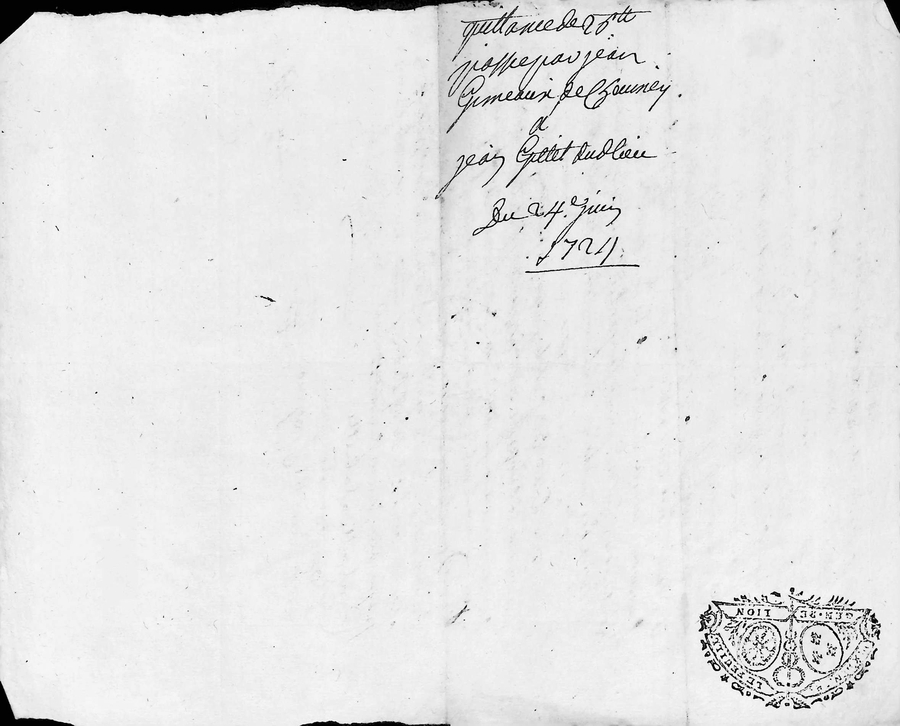 quittance de 25tt
passé par jean
Gimeaux de Chouney.
a
jean Gillet dud lieu
Du 24.e Juin
1724
GEN·DE LION